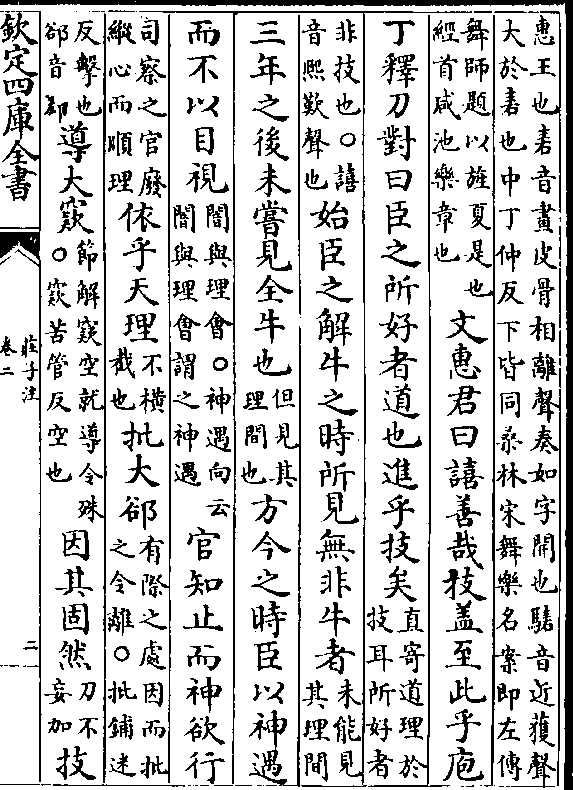 惠王也砉音畫皮骨相離聲奏如字開也騞音近獲聲
大於砉也中丁仲反下皆同桑林宋舞樂名案即左傳
舞師題以旌夏是也
經首咸池樂章也
文惠君曰譆善哉技盖至此乎庖
丁釋刀對曰臣之所好者道也進乎技矣
直寄道理於
技耳所好者
非技也○譆
音熙歎聲也
始臣之解牛之時所見無非牛者
未能見
其理間
三年之後未嘗見全牛也
但見其
理間也
方今之時臣以神遇
而不以目視
闇與理會○神遇向云
闇與理會謂之神遇
官知止而神欲行
司察之官廢
縱心而順理
依乎天理
不横
截也
批大郤
有際之處因而批
之令離○批鋪迷
反擊也
郤音却
導大窾
節解窾空就導令殊
○窾苦管反空也
因其固然
刀不
妄加
技
欽定四庫全書
莊子注
卷二
二